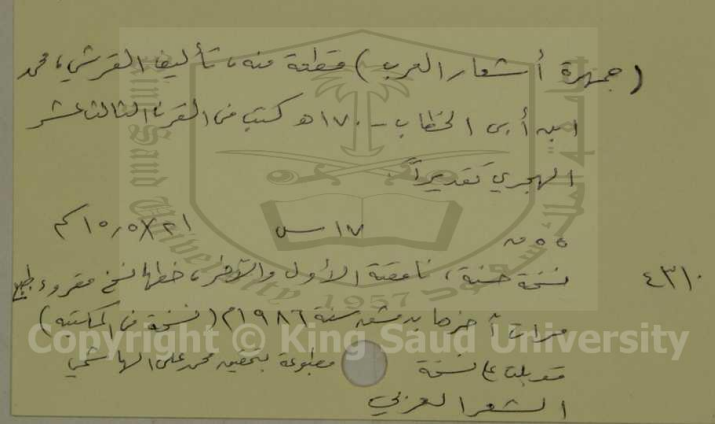 (جمهرة أشعار العرب) قطعة منه، تأليف القرشي، محمد
ابن أبي الخطاب - ١٧٠هـ كتب في القرن الثالث عشر
الهجري تقديراً.
٥٥ ق ١٧ س ٢١×١٥٫٥ كم
٤٣١٠ نسخة حسنة، ناقصة الأول والآخر، خطها نسخ مقروء، طبع
مرات آخرها بدمشق سنة ١٩٨٦م (نسخة في المكتبة)
مقابلة على نسخة مطبوعة بتحقيق محمد علي الهاشمي
الشعر العربي
Copyright © King Saud University
King Saud University
1957